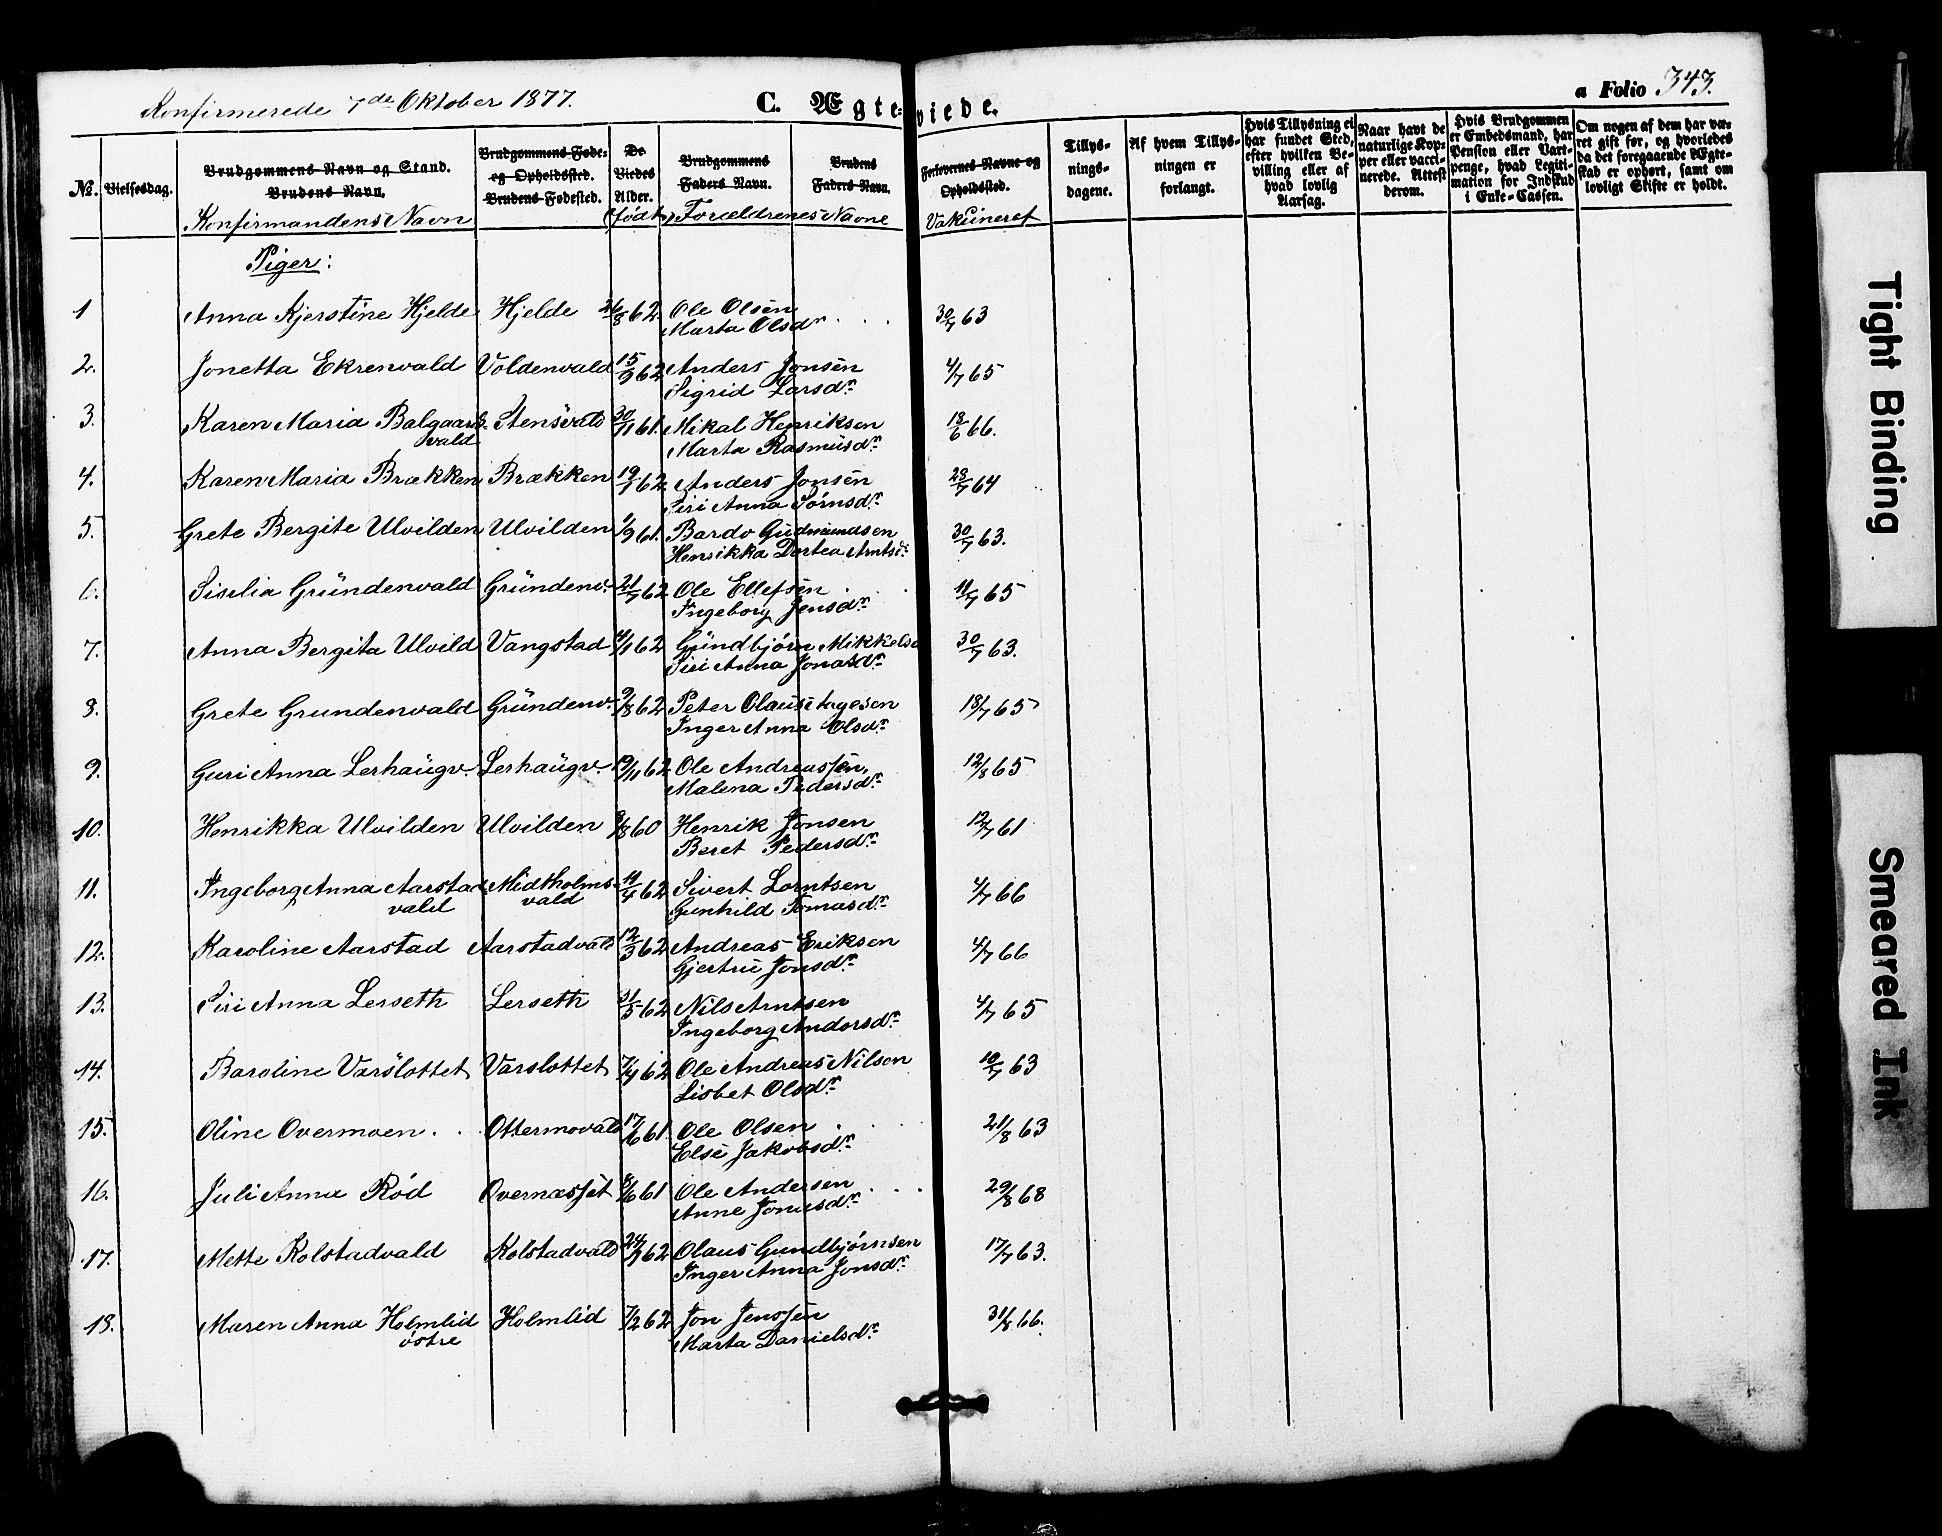 Konfirmerede 7de Oktober 1877.
C. Ægteviede.
a Folio 343.
№. Vielsesdag. Brudgommens Navn og Stand. Brudens Navn. Brudgommens Føde- og Opholdssted. Brudens Fødested. De Viedes Alder. Brudgommens Faders Navn. Brudens Faders Navn. Forlovernes Navne og Opholdssted. Tillysningsdagene. Af hvem Tillysningen er forlangt. Hvis Tillysning ei har fundet Sted, efter hvilken Bevilling eller af hvad lovlig Aarsag. Naar havt de naturlige Kopper eller vaccinerede. Attest derom. Hvis Brudgommen er Embedsmand, har Pension eller Vartpenge, hvad Legitimation for Indskud i Enke-Cassen. Om nogen af dem har været gift før, og hvorledes da det foregaaende Ægteskab er ophørt, samt om lovligt Skifte er holdt.
Konfirmandens Navn (født) Forældrenes Navne Vakcineret
Piger:
1 Anna Kjerstine Hjelde Hjelde 26/8 62. Ole Olsen 30/7 63
Marta Olsdr
2. Jonetta Ekrenvald Voldenvald 15/9 62 Anders Jonsen 4/7 65
Sigrid Larsdr
3. Karen Maria Balgaards Stensvald 30/11 61. Mikal Henriksen 18/6 66.
vald Marta Rasmusdr
4. Karen Maria Brækken Brækken 19/7 62. Anders Jonsen 28/7 64
Siri Anna Sörnsdr
5. Grete Bergite Ulvilden Ulvilden 1/9 61. Bardo Gudmundsen 30/7 63.
Henrikka Dortea Arntsdr
6. Sisilia Gründenvald Gründenv. 21/7 62 Ole Ellefsen 11/7 65
Ingeborg Jensdr
7. Anna Bergita Ulvild Vangstad 4/1 62 Gündbjørn Mikkelsen 30/7 63.
Siri Anna Jonasdr
8. Grete Grundenvald Gründenv. 9/8 62 Peter Olaus Aagesen 18/7 65
Inger Anna Olsdr
9. Guri Anna Lerhaügv. Lerhaügv. 19/11 62 Ole Andreassen, 12/8 65
Malena Pedersdr
10. Henrikka Ulvilden Ulvilden 3/8 60 Henrik Jonsen 12/7 61
Beret Pedersdr
11. Ingeborg Anna Aarstad Midtholms- 11/4 62 Sivert Lorntsen 4/7 66
vald vald Gunhild Tomasdr
12. Karoline Aarstad Aarstadvald 12/3 62 Andreas Eriksen 4/7 66
Gjertru Jonsdr
13. Siri Anna Lerseth Lerseth 31/5 62 Nils Arntsen 4/7 65
Ingeborg Andersdr
14. Baroline Varslottet Varslottet 7/4 62 Ole Andreas Nilsen 10/7 63
Lisbet Olsdr
15. Oline Overmoen Ottermovald 17/6 61 Ole Olsen 21/8 63
Else Jakobsdr
16. Juli Anna Rød Overnæsset 8/6 61 Ole Andersen 29/8 68
Anne Jonusdr
17. Mette Kolstadvald Kolstadvald 24/9 62 Olaus Gundbjørnsen 17/7 63.
Inger Anna Jonsdr
18. Maren Anna Holmlid Holmlid 7/2 62 Jon Jenssen 31/8 66.
østre Marta Danielsdr
Tight Binding
Smeared Ink